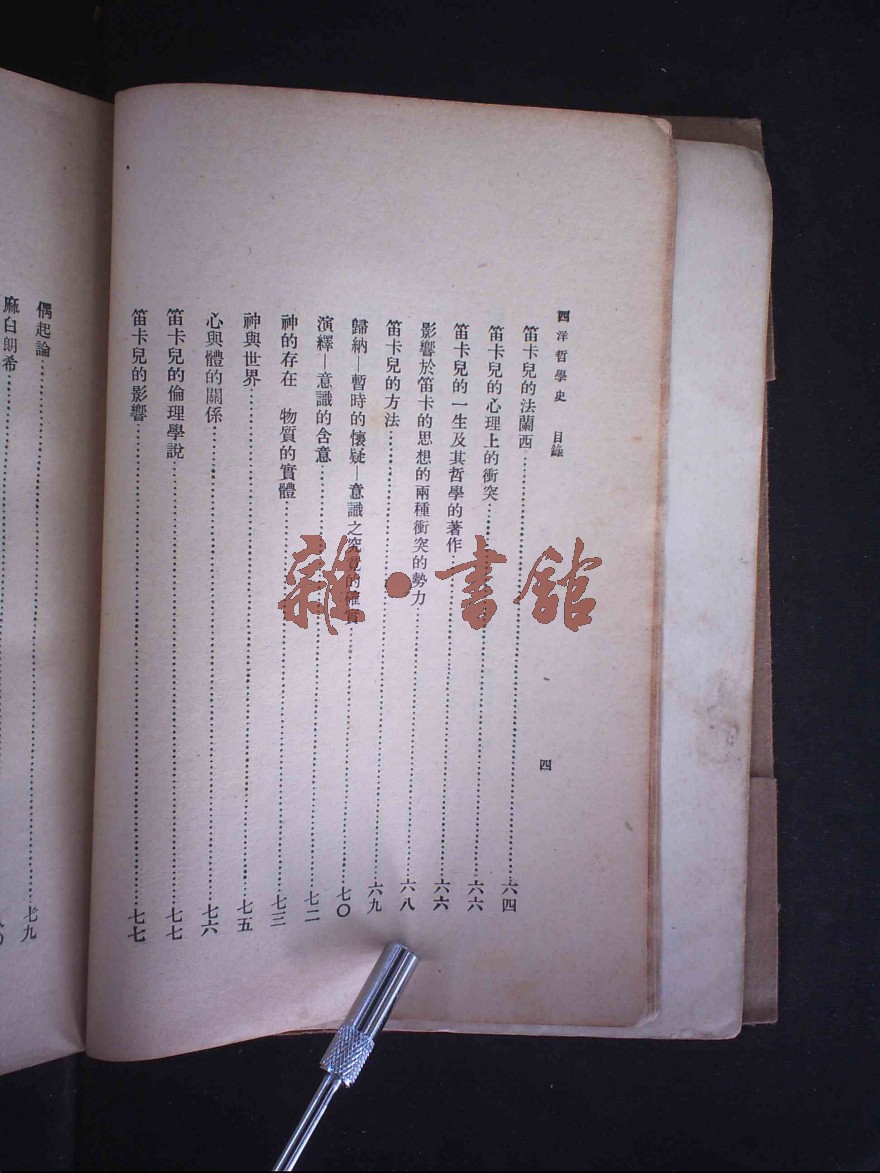 西洋哲學史　目錄
四
笛卡兒的法蘭西……六四
笛卡兒的心理上的衝突……六六
笛卡兒的一生及其哲學的著作……六六
影響於笛卡的思想的兩種衝突的勢力……六八
笛卡兒的方法……六九
歸納—暫時的懷疑—意識之究竟的確實……七〇
演繹—意識的含意……七二
神的存在　物質的實體……七三
神與世界……七五
心與體的關係……七六
笛卡兒的倫理學說……七七
笛卡兒的影響……七七
偶起論……七九
麻白朗希……
雜•書館